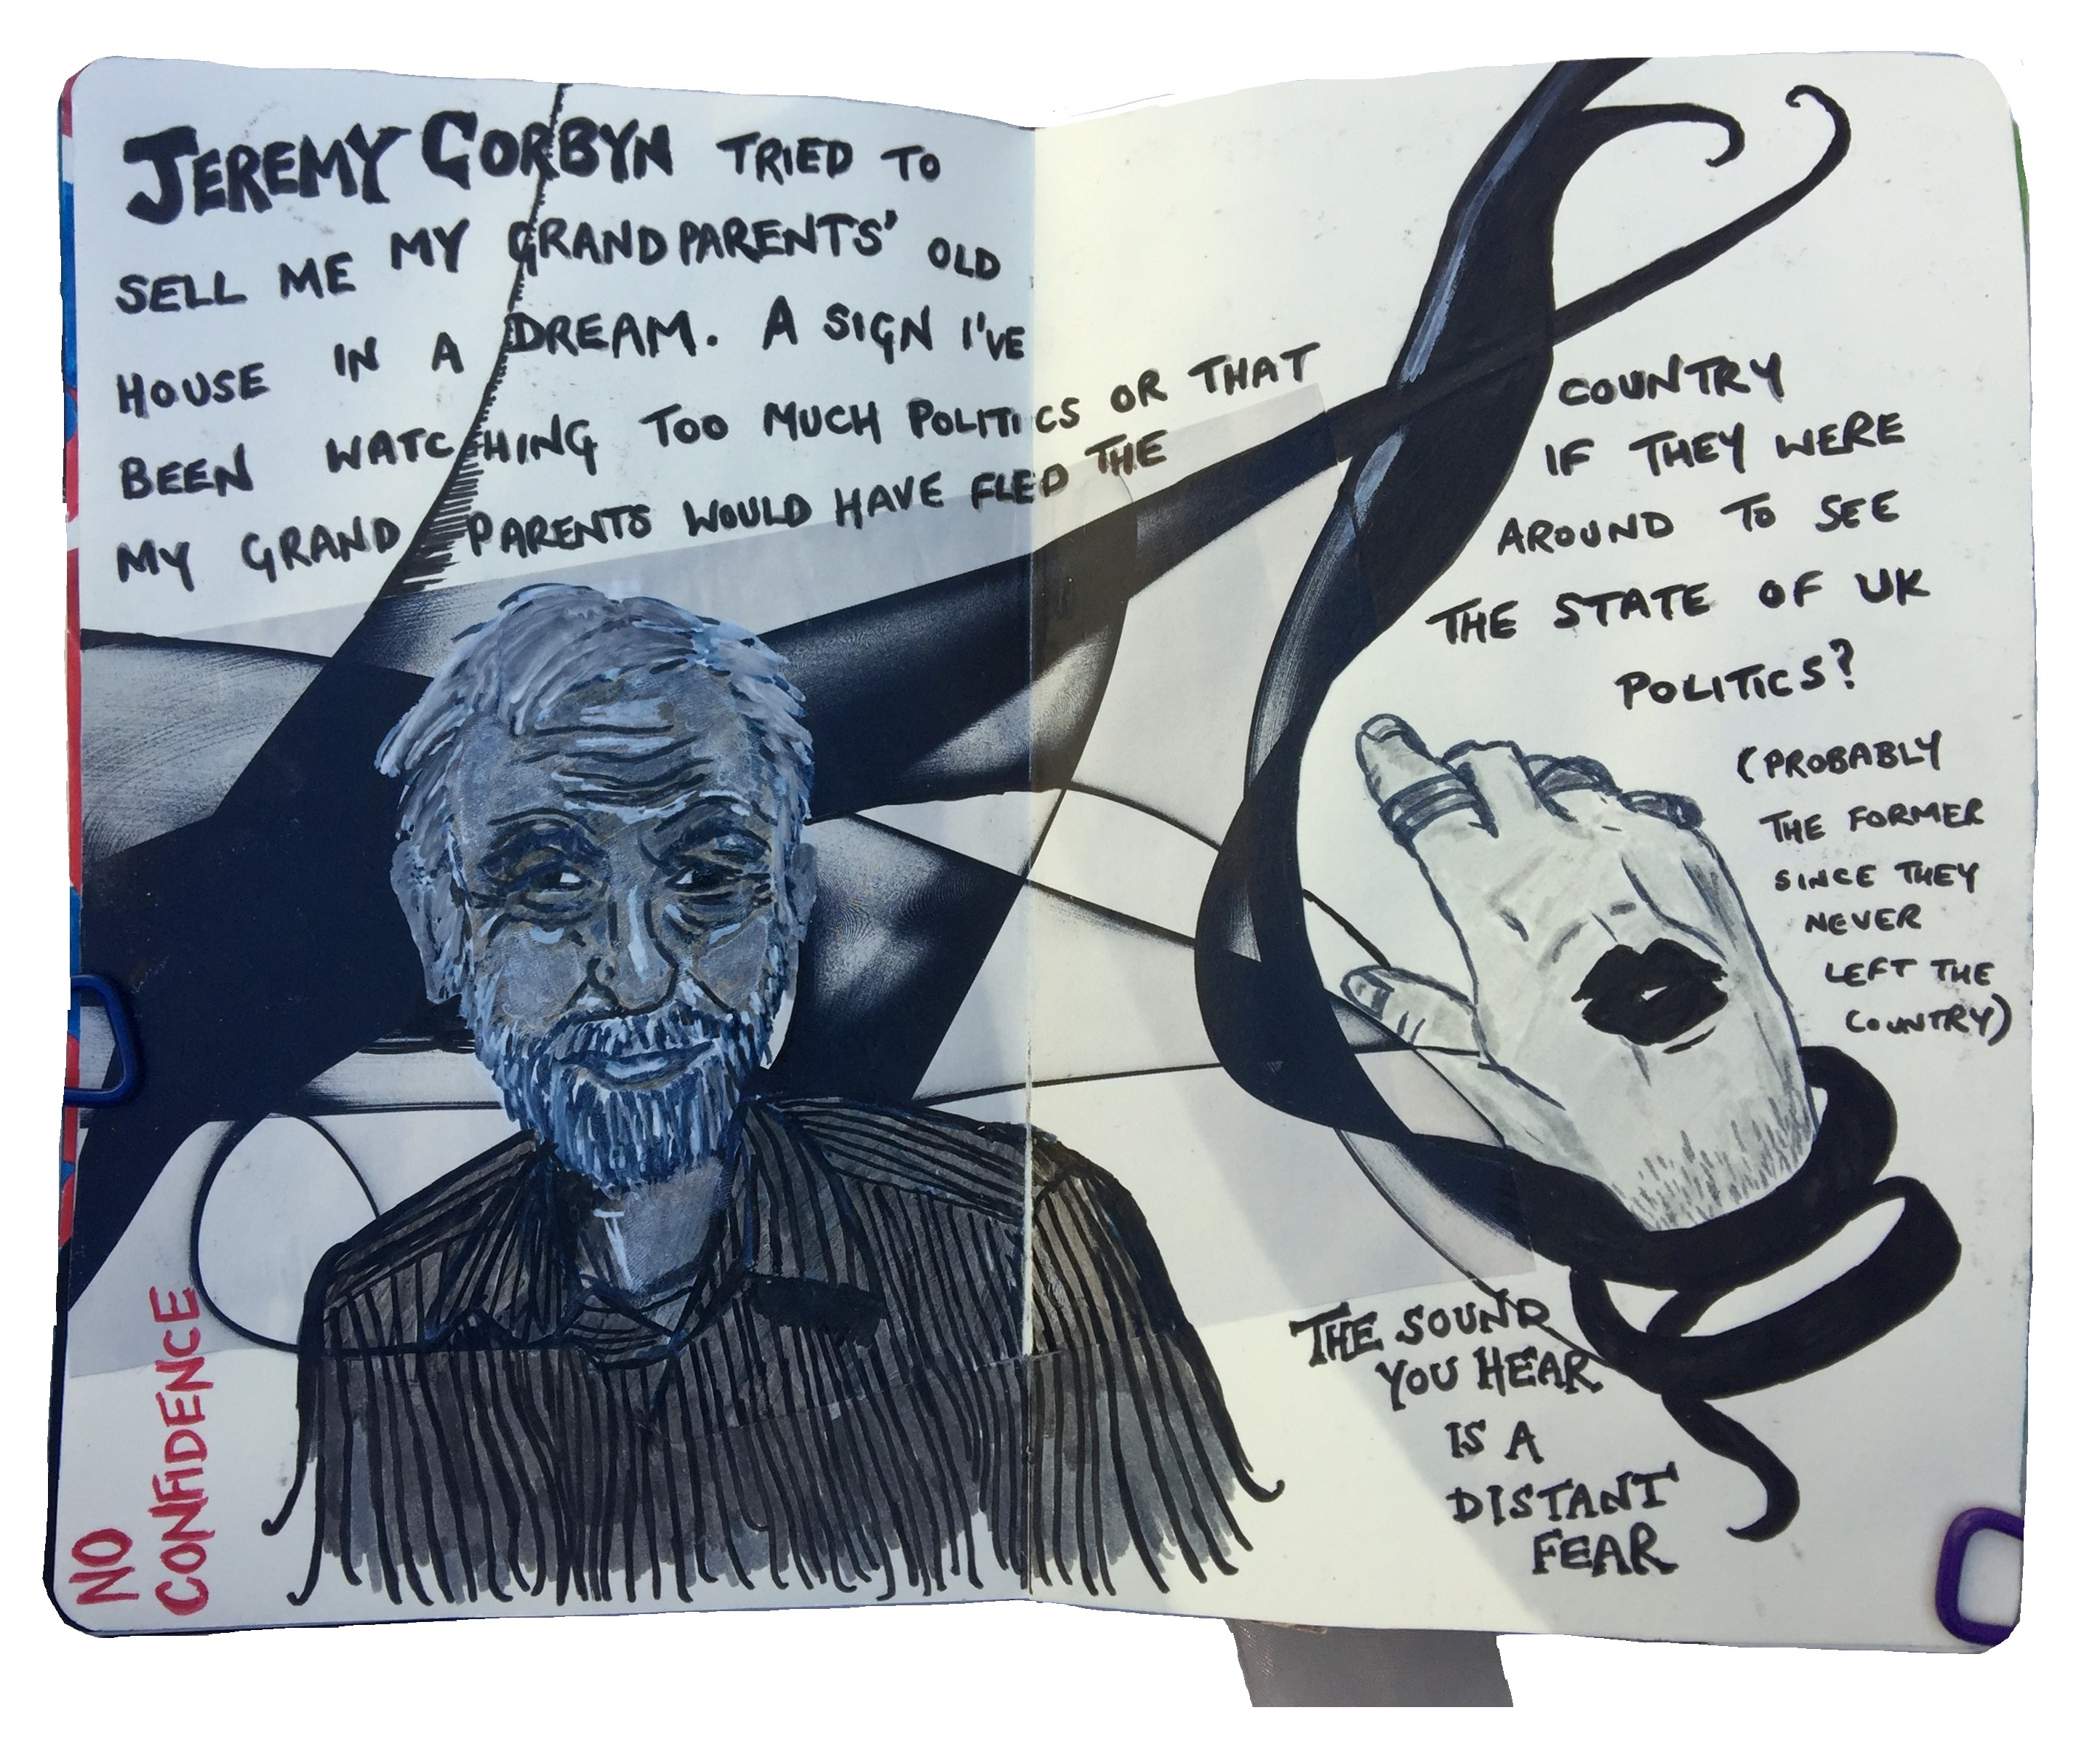 JEREMY CORBYN TRIED TO
SELL ME MY GRANDPARENTS' OLD
HOUSE IN A DREAM. A SIGN I'VE
BEEN WATCHING TOO MUCH POLITICS OR THAT
MY GRAND PARENTS WOULD HAVE FLED THE
COUNTRY
IF THEY WERE
AROUND TO SEE
THE STATE OF UK
POLITICS?
(PROBABLY
THE FORMER
SINCE THEY
NEVER
LEFT THE
COUNTRY)
THE SOUND
YOU HEAR
IS A
DISTANT
FEAR
NO
CONFIDENCE